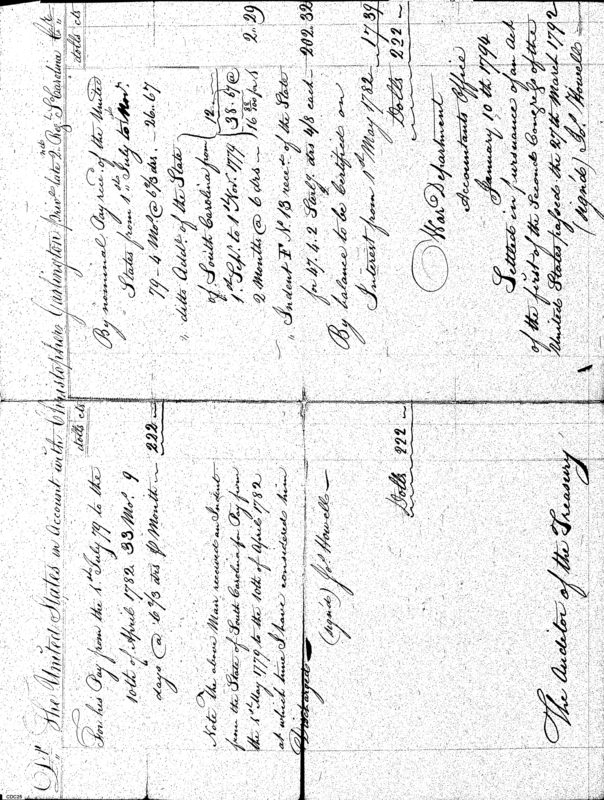 Dr. The United States in Account with Christopher Gallington private late 2 Regt. S. Carolina Cr.
dolls cts
For his Pay from the 1st July 79 to the
10th of April 1782 33 Mos. 9
days @ 6 2/3 drs ⅌ Month 222 —
Note The above Man received an Indent
from the State of South Carolina for Pay from
the 1st May 1779 to the 10th of April 1782
at which time I have considered him
Discharged —
(signd) Jos. Howell —
Dolls 222 —
The Auditor of the Treasury
dolls cts
By nominal Pay recd. of the United
States from 1st July to Novr.
79 - 4 Mos @ 6 2/3 drs. - 26.67
" ditto Addl. of the State
of South Carolina from 12 —
1st Sept. to 1st Novr. 1779 38.67 @
2 Months @ 6 drs — 16 88/100 for 1 2.29
" Indent F No 13 recd. of the State
for 47.4.2 Sterlg. drs 4/8 each - 202.32
By balance to be Certified on
Interest from 1st May 1782 17.39
Dolls 222 —
War Department
Accountants Office
January 10th 1794
Settled in pursuance of an Act
of the first of the Second Congress of the
United States passed the 27th March 1792
(signd) Jos. Howell
CDC25